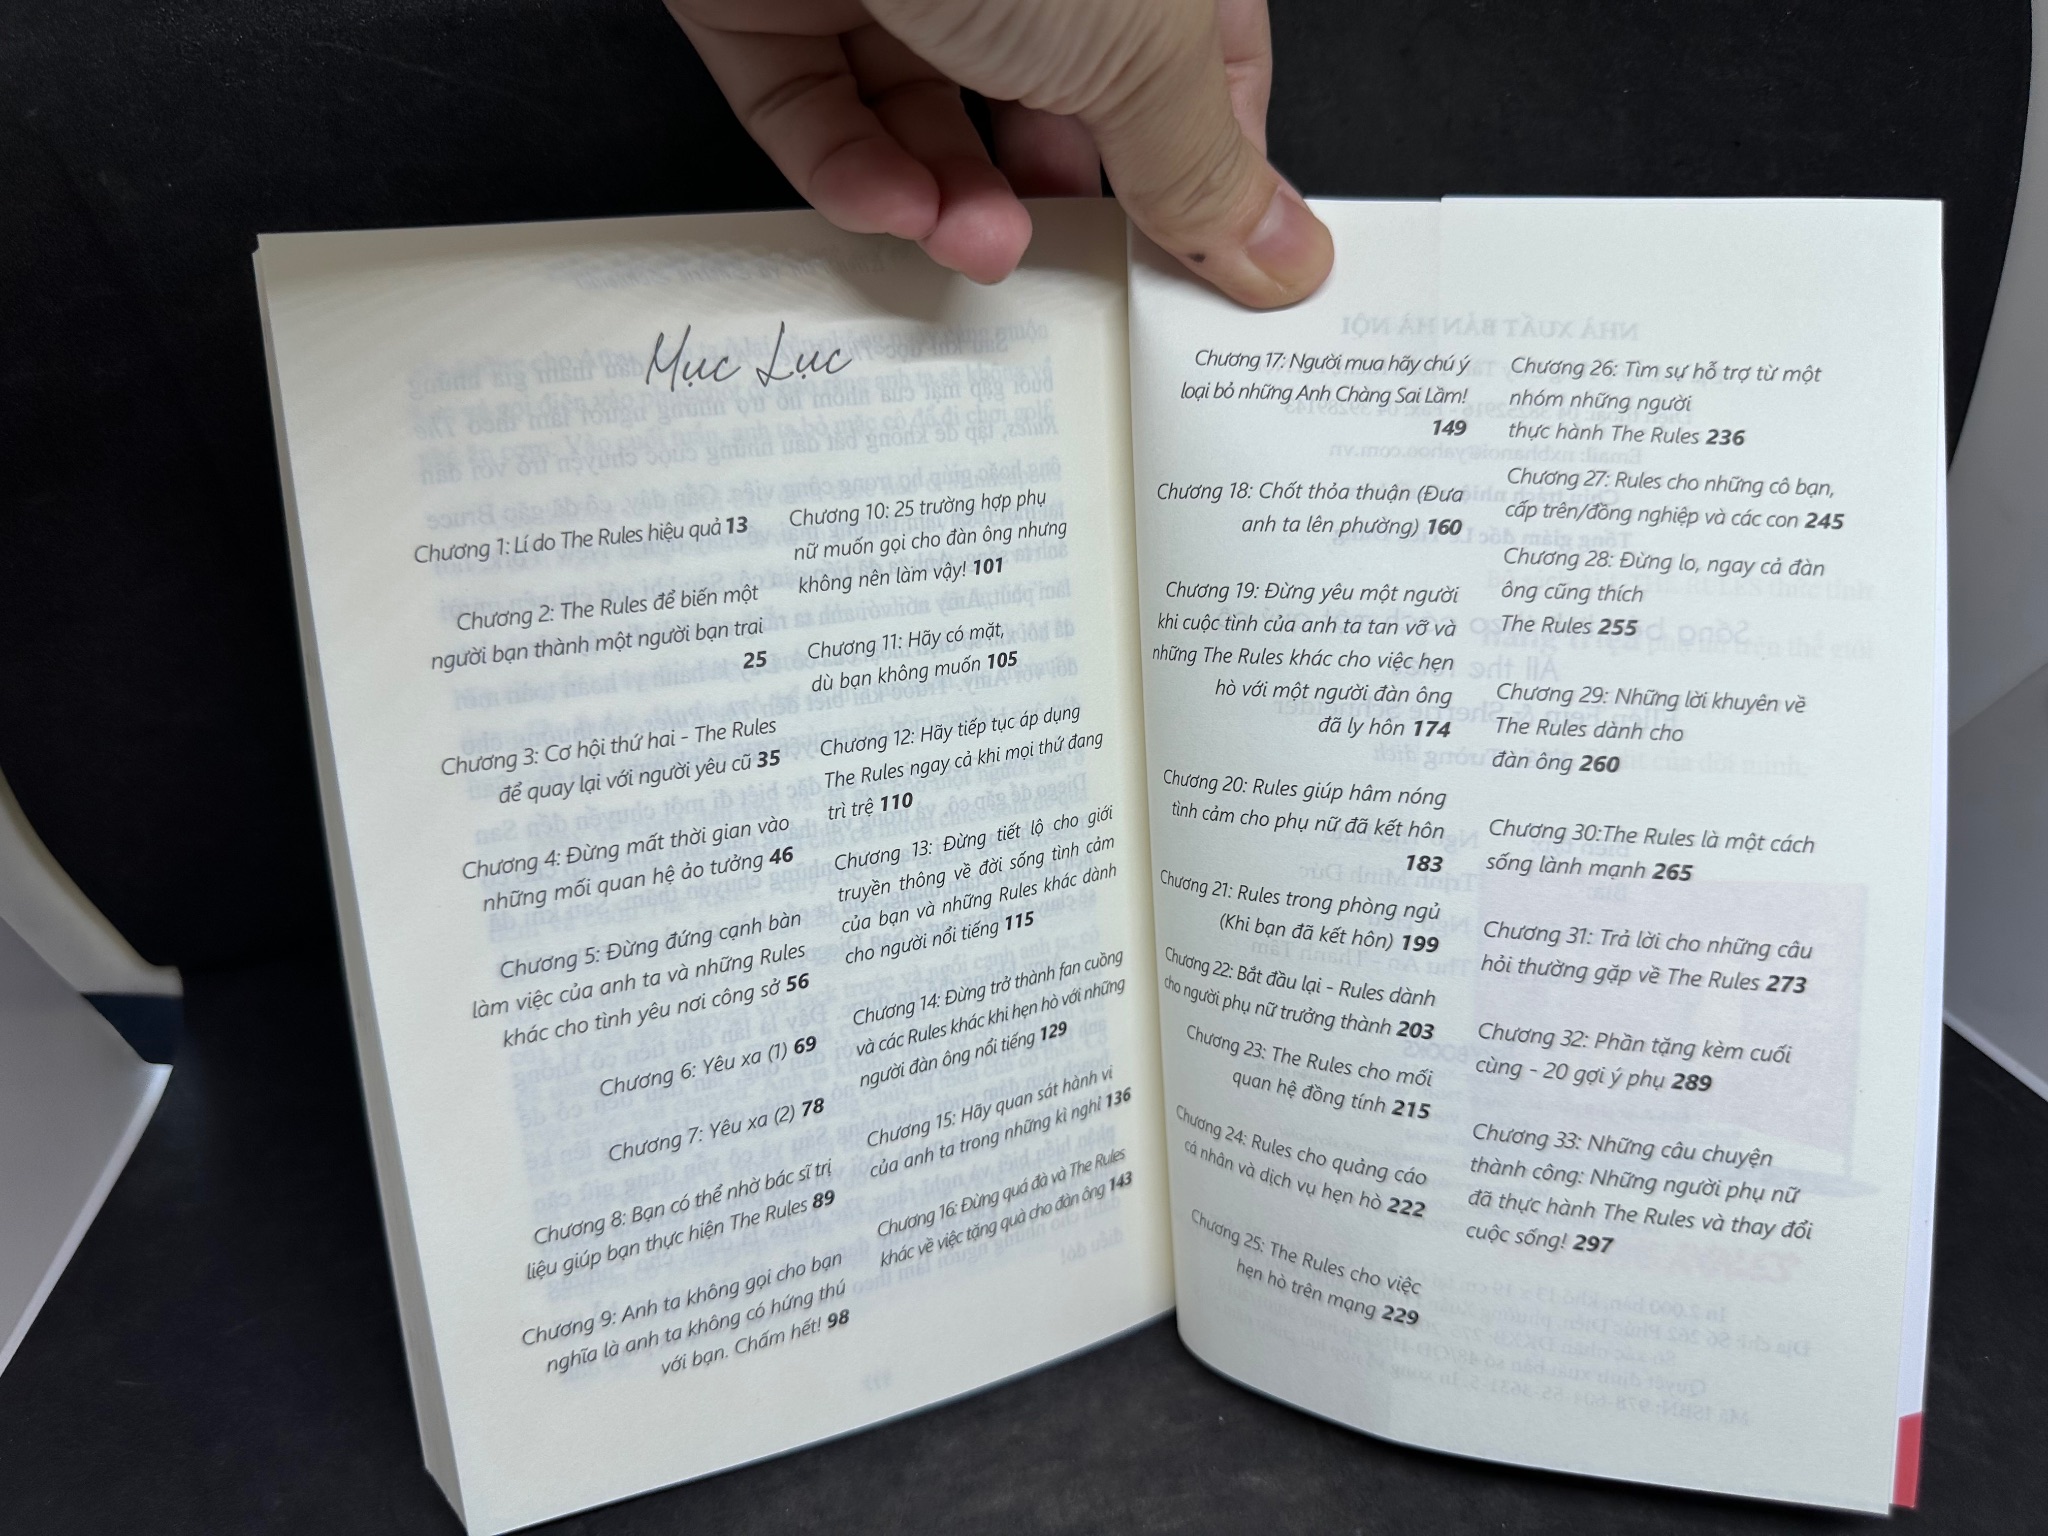 Mục Lục
Chương 1: Lí do The Rules hiệu quả 13
Chương 2: The Rules để biến một
người bạn thành một người bạn trai
25
Chương 3: Cơ hội thứ hai - The Rules
để quay lại với người yêu cũ 35
Chương 4: Đừng mất thời gian vào
những mối quan hệ ảo tưởng 46
Chương 5: Đừng đứng cạnh bàn
làm việc của anh ta và những Rules
khác cho tình yêu nơi công sở 56
Chương 6: Yêu xa (1) 69
Chương 7: Yêu xa (2) 78
Chương 8: Bạn có thể nhờ bác sĩ trị
liệu giúp bạn thực hiện The Rules 89
Chương 9: Anh ta không gọi cho bạn
nghĩa là anh ta không có hứng thú
với bạn. Chấm hết! 98
Chương 10: 25 trường hợp phụ
nữ muốn gọi cho đàn ông nhưng
không nên làm vậy! 101
Chương 11: Hãy có mặt,
dù bạn không muốn 105
Chương 12: Hãy tiếp tục áp dụng
The Rules ngay cả khi mọi thứ đang
trì trệ 110
Chương 13: Đừng tiết lộ cho giới
truyền thông về đời sống tình cảm
của bạn và những Rules khác dành
cho người nổi tiếng 115
Chương 14: Đừng trở thành fan cuồng
và các Rules khác khi hẹn hò với những
người đàn ông nổi tiếng 129
Chương 15: Hãy quan sát hành vi
của anh ta trong những kì nghỉ 136
Chương 16: Đừng quá đà và The Rules
khác về việc tặng quà cho đàn ông 143
Chương 17: Người mua hãy chú ý
loại bỏ những Anh Chàng Sai Lầm!
149
Chương 18: Chốt thỏa thuận (Đưa
anh ta lên phường) 160
Chương 19: Đừng yêu một người
khi cuộc tình của anh ta tan vỡ và
những The Rules khác cho việc hẹn
hò với một người đàn ông
đã ly hôn 174
Chương 20: Rules giúp hâm nóng
tình cảm cho phụ nữ đã kết hôn
183
Chương 21: Rules trong phòng ngủ
(Khi bạn đã kết hôn) 199
Chương 22: Bắt đầu lại - Rules dành
cho người phụ nữ trưởng thành 203
Chương 23: The Rules cho mối
quan hệ đồng tính 215
Chương 24: Rules cho quảng cáo
cá nhân và dịch vụ hẹn hò 222
Chương 25: The Rules cho việc
hẹn hò trên mạng 229
Chương 26: Tìm sự hỗ trợ từ một
nhóm những người
thực hành The Rules 236
Chương 27: Rules cho những cô bạn,
cấp trên/đồng nghiệp và các con 245
Chương 28: Đừng lo, ngay cả đàn
ông cũng thích
The Rules 255
Chương 29: Những lời khuyên về
The Rules dành cho
đàn ông 260
Chương 30:The Rules là một cách
sống lành mạnh 265
Chương 31: Trả lời cho những câu
hỏi thường gặp về The Rules 273
Chương 32: Phần tặng kèm cuối
cùng - 20 gợi ý phụ 289
Chương 33: Những câu chuyện
thành công: Những người phụ nữ
đã thực hành The Rules và thay đổi
cuộc sống! 297